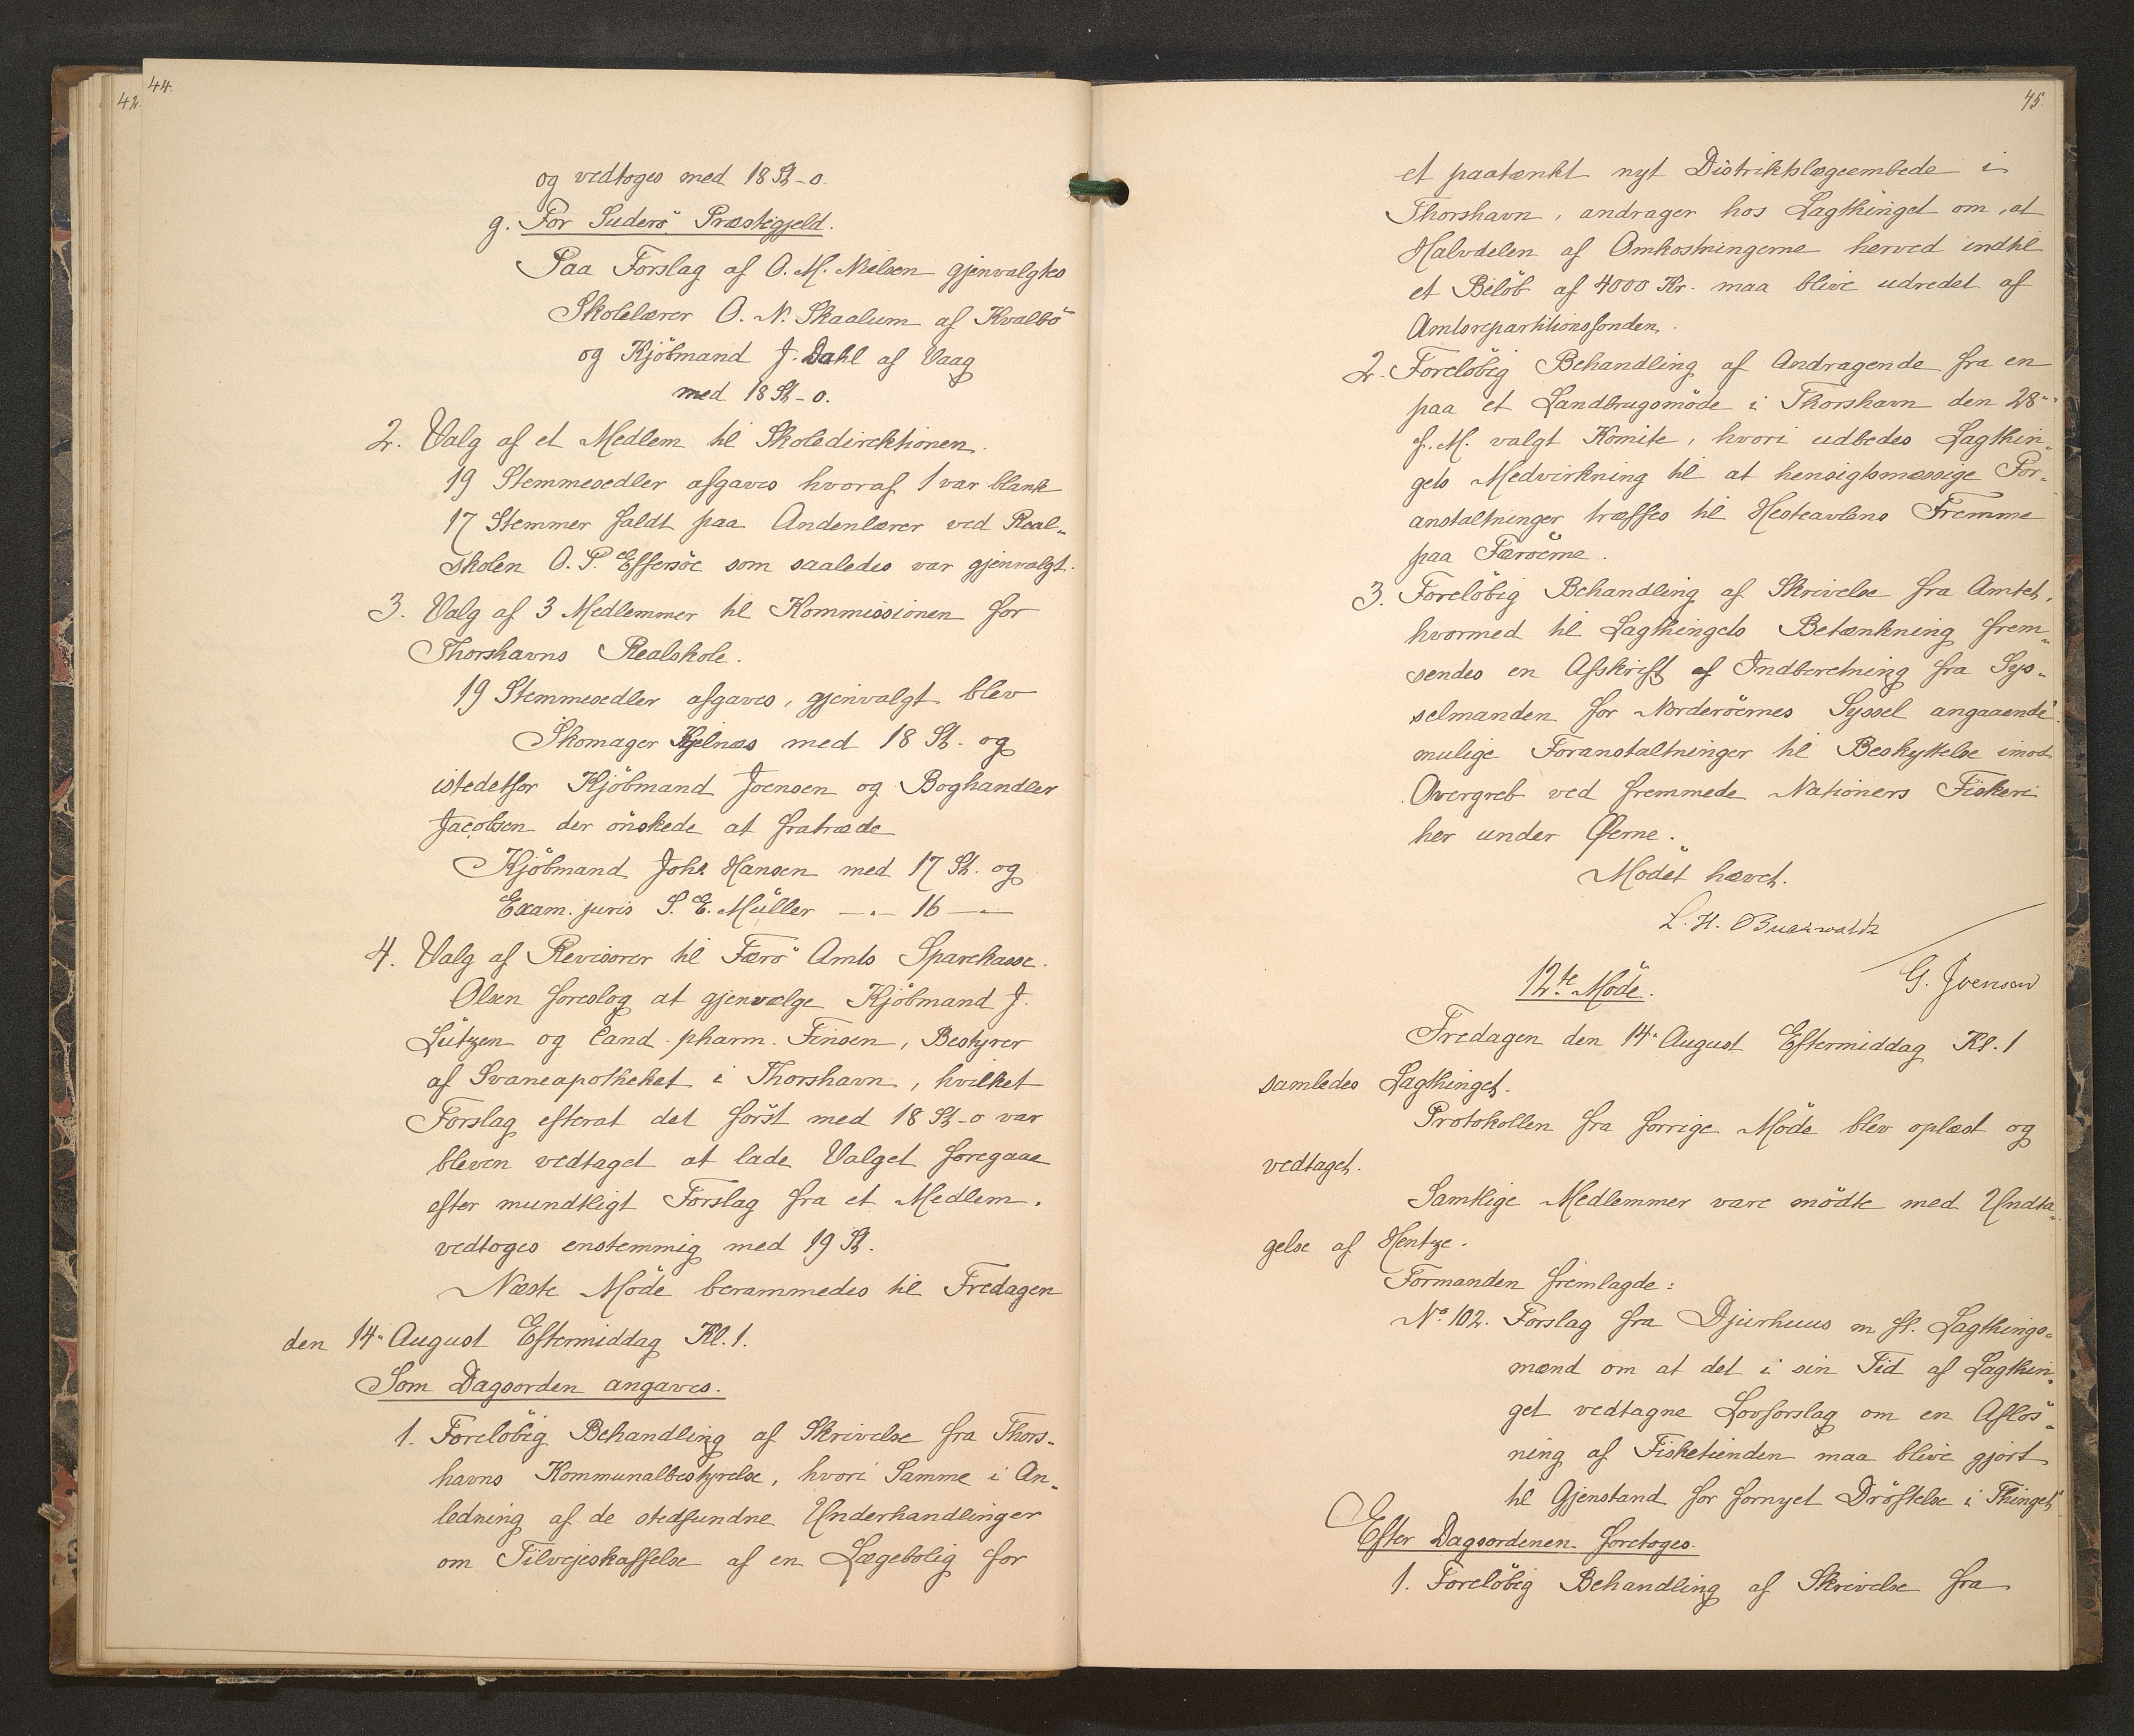 44.
42.
og vedtoges med 18 St - 0.
g. For Suderö Præstegjeld.
Paa Forslag af O. M. Nielsen gjenvalgtes
Skolelærer O. N. Skaalum af Kvalbö
og Kjöbmand J. Dahl af Vaag
med 18 St - 0.
2. Valg af et Medlem til Skoledirektionen.
19 Stemmesedler afgaves hvoraf 1 var blank
17 Stemmer faldt paa Andenlærer ved Real-
skolen O. P. Effersöe som saaledes var gjenvalgt.
3. Valg af 3 Medlemmer til Kommissionen for
Thorshavns Realskole.
19 Stemmesedler afgaves, gjenvalgt blev
Skomager Kjelnæs med 18 St. og
istedetfor Kjöbmand Joensen og Boghandler
Jacobsen der önskede at fratræde
Kjöbmand Johs Hansen med 17 St. og
Exam. juris S. E. Müller — " — 16 — " —
4. Valg af Revisorer til Færö Amts Sparekasse.
Olsen foreslog at gjenvælge Kjöbmand J.
Lützen og Cand. pharm. Finsen, Bestyrer
af Svaneapotheket i Thorshavn, hvilket
Forslag efterat det först med 18 St - 0 var
bleven vedtaget at lade Valget foregaae
efter mundtligt Forslag fra et Medlem,
vedtoges enstemmig med 19 St.
Næste Möde berammedes til Fredagen
den 14. August Eftermiddag Kl. 1.
Som Dagsorden angaves.
1. Foreløbig Behandling af Skrivelse fra Thors-
havns Kommunalbestyrelse, hvori Samme i An-
ledning af de stedfundne Underhandlinger
om Tilvejeskaffelse af en Lægebolig for
45.
et paatænkt nyt Distriktslægeembede i
Thorshavn, andrager hos Lagthinget om, at
Halvdelen af Omkostningerne herved indtil
et Belöb af 4000 Kr. maa blive udredet af
Amtsrepartitionsfonden.
2. Forelöbig Behandling af Andragende fra en
paa et Landbrugsmöde i Thorshavn den 28"
f. M. valgt Komite, hvori udbedes Lagthin-
gets Medvirkning til at hensigtsmæssige For-
anstaltninger træffes til Hesteavlens Fremme
paa Færöerne.
3. Forelöbig Behandling af Skrivelse fra Amtet,
hvormed til Lagthingets Betænkning frem-
sendes en Afskrift af Indberetning fra Sys-
selmanden for Norderöernes Syssel angaaende
mulige Foranstaltninger til Beskyttelse imod
Overgreb ved fremmede Nationers Fiskeri
her under Øerne.
Mödet hævet.
L. H. Buchwaldt
G. Joensen
12te Möde.
Fredagen den 14. August Eftermiddag Kl. 1
samledes Lagthinget.
Protokollen fra forrige Möde blev oplæst og
vedtaget.
Samtlige Medlemmer vare mödte med Undta-
gelse af Hentze.
Formanden fremlagde:
No. 102. Forslag fra Djurhuus m fl. Lagthings-
mænd om at det i sin Tid af Lagthin-
get vedtagne Lovforslag om en Aflös-
ning af Fisketienden maa blive gjort
til Gjenstand for fornyet Dröftelse i Thinget.
Efter Dagsordenen foretoges.
1. Forelöbig Behandling af Skrivelse fra